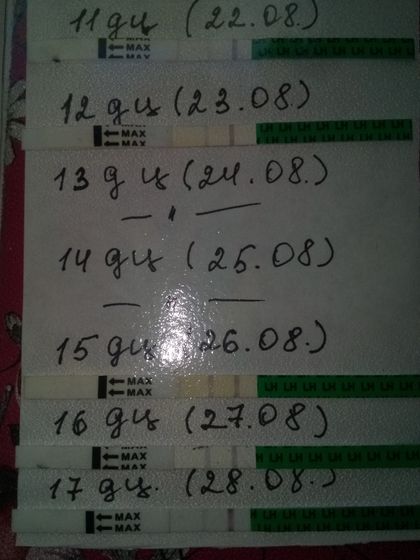 11 дц (22.08.)
MAX LH LH LH LH LH LH LH
12 дц (23.08.)
MAX LH LH LH LH LH LH LH
MAX
13 дц (24.08.)
— " —
14 дц (25.08)
— " —
15 дц (26.08.)
MAX
MAX LH LH LH LH LH LH LH
16 дц (27.08)
MAX
MAX LH LH LH LH LH LH LH
17 дц. (28.08.)
MAX
MAX LH LH LH LH LH LH LH